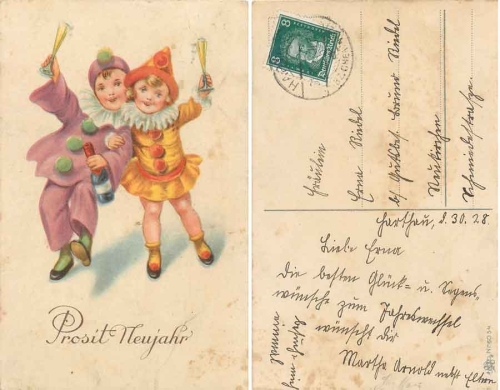 Prosit Neujahr
8 8
Deutsches Reich
Fräulein
Erna Riedel
Bruno Riedel
Neukirchen
Harthau, d. 30. 28.
Liebe Erna
Die besten Glück- u. Segens-
wünsche zum Jahreswechsel
wünscht dir
Martha Arnold nebst Eltern